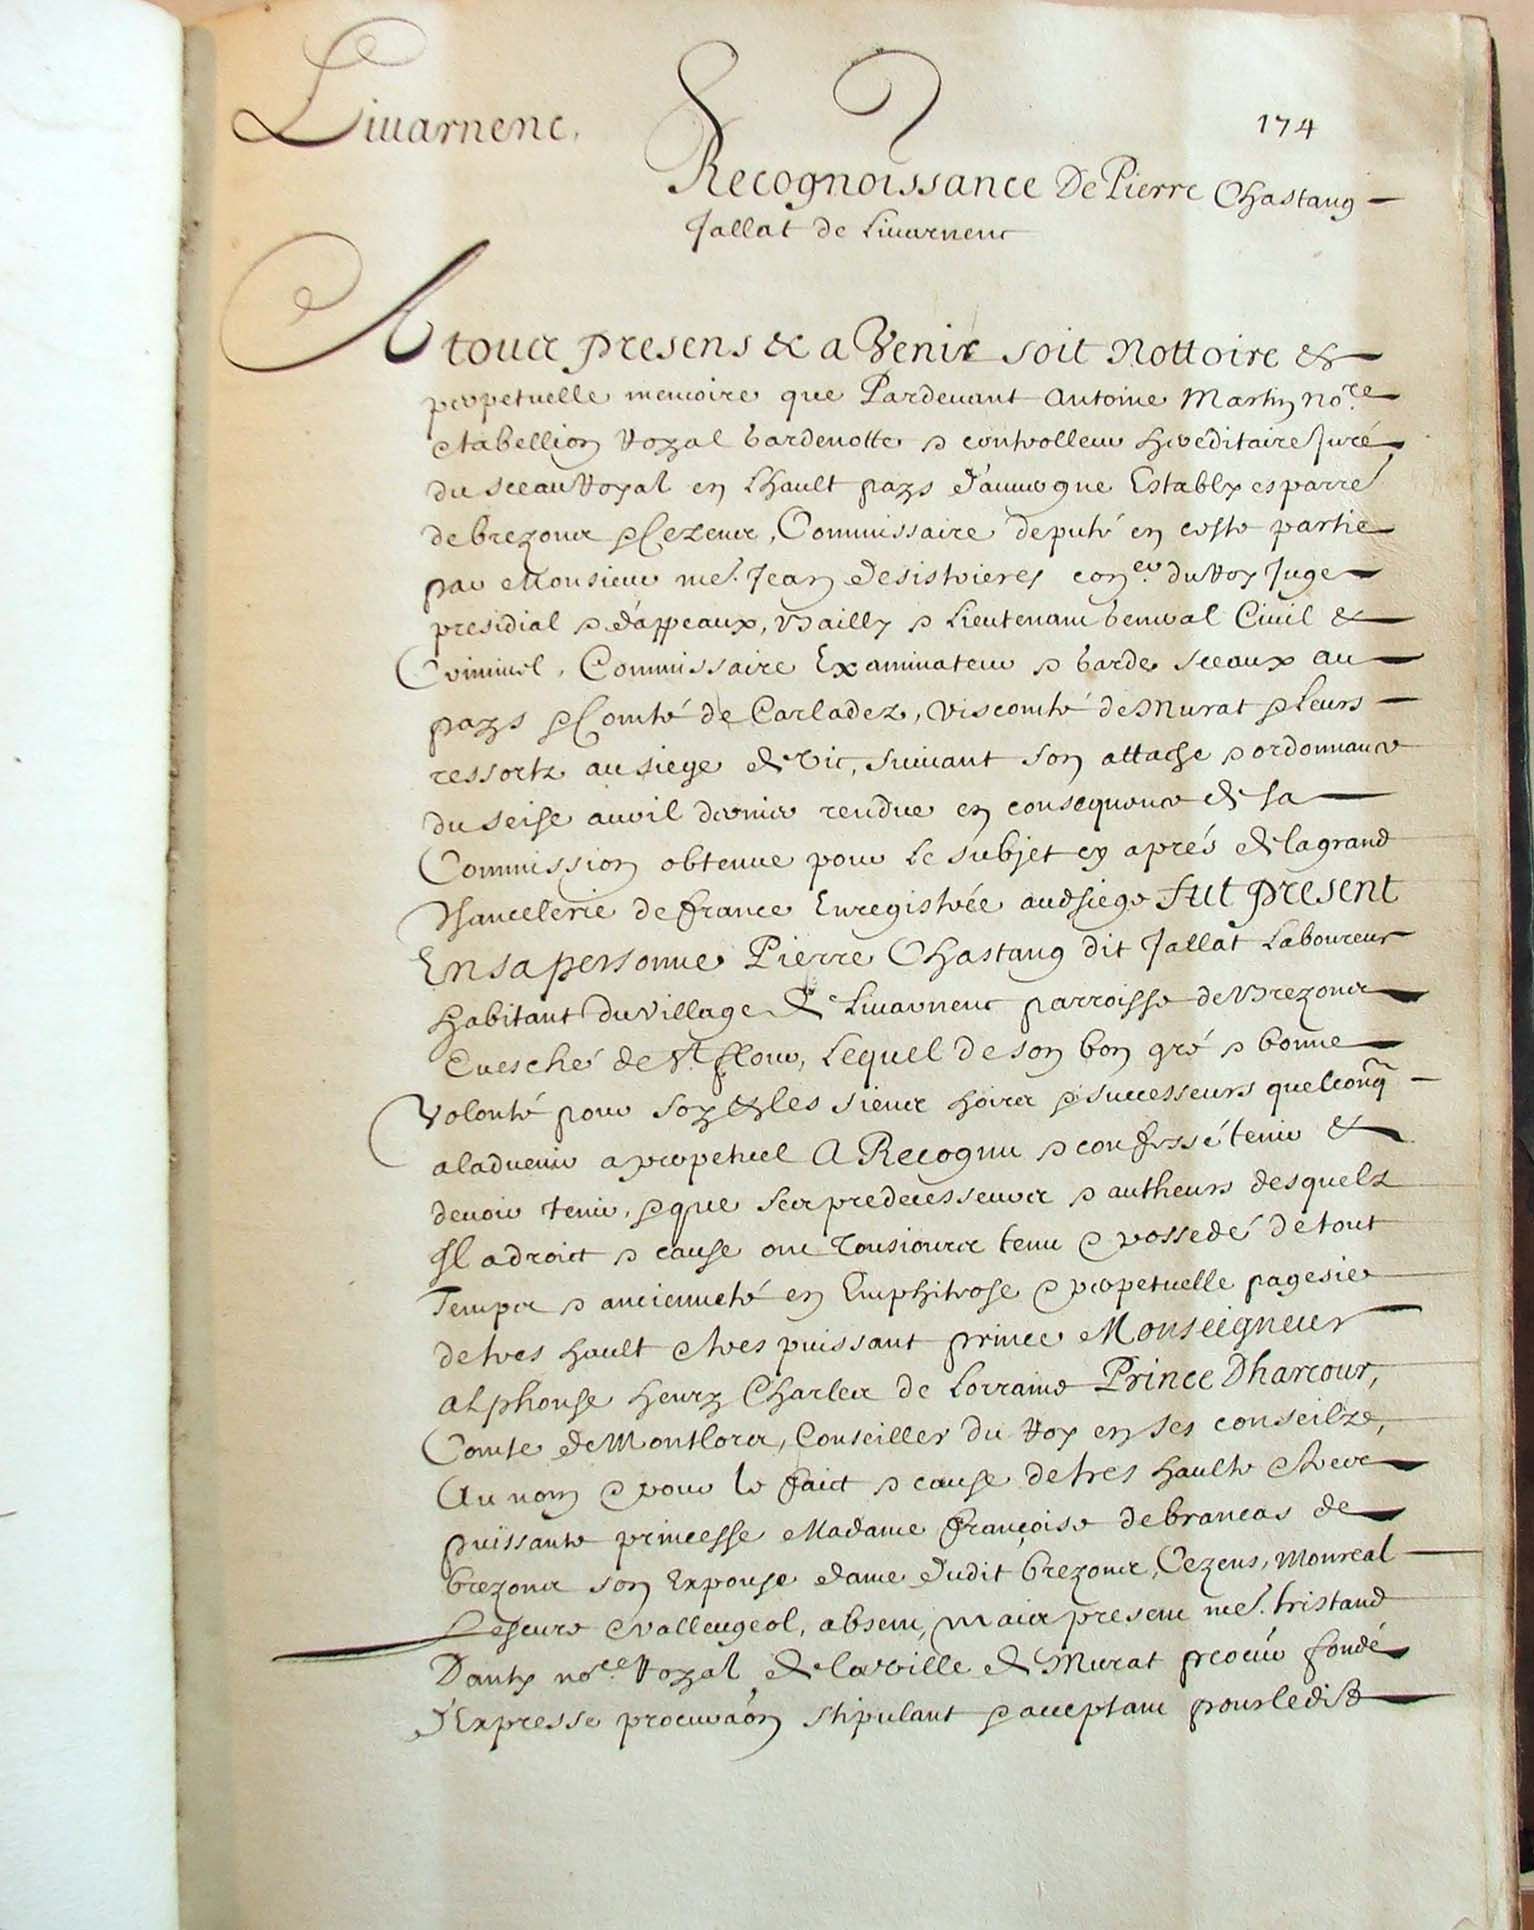 Liuarnenc.
174
Recognoissance De Pierre Chastang
Jallat de Liuarnenc
A tous presens & a Venir soit Nottoire &
perpetuelle memoire que Pardeuant Antoine Martin no.re
& tabellion Royal Gardenotte & controlleur hereditaire Juré
du sceau Royal en Lhault pays d'auuergne Establyes parre
de brezons & Cezens, Commissaire deputé en ceste partie
par Monsieur me. Jean desistrieres con.er du Roy Juge
presidial & d'appeaux, Bailly & Lieutenant General Ciuil &
Criminel, Commissaire Examinateur & Garde sceaux au
pays & Comté de Carladez, Viscomté de Murat & Leurs
ressortz au siege de Vic, suiuant son attache & ordonnance
du seise auril dernier rendue en consequence de sa
Commission obtenue pour Le subjet cy aprés de la grand
Chancelerie de france Enregistrée aud siege fut present
En sa personne Pierre Chastang dit Jallat Laboureur
habitant du village de Liuarnenc parroisse de Brezons
Euesché de St. flour, Lequel de son bon gré & bonne
Volonté pour soy & les siens hoirs & successeurs quelconq
aladuenir a perpetuel A Recognu & confessé tenir &
deuoir tenir, & que ses predecesseurs & autheurs desquelz
Il a droict & cause ont Tousiours tenu & possedé de tout
Temps & ancienneté en Emphiteose & perpetuelle pagesie
de tres hault & tres puissant prince Monseigneur
alphonse henry Charles de Lorraine Prince Dharcour,
Comte de Montlors, Conseiller du Roy en ses conseilze,
Au nom & pour le faict & cause de tres haulte & tres
puissante princesse Madame françoise de brancas de
brezons son Expouse dame dudit brezons, Cezens, Monreal
Lescure & valleugeol, absent, Mais present me. tristand
Danty no.re Royal de la ville de Murat procur fondé
d'Expresse procuraon stipulant & acceptant pour ledist